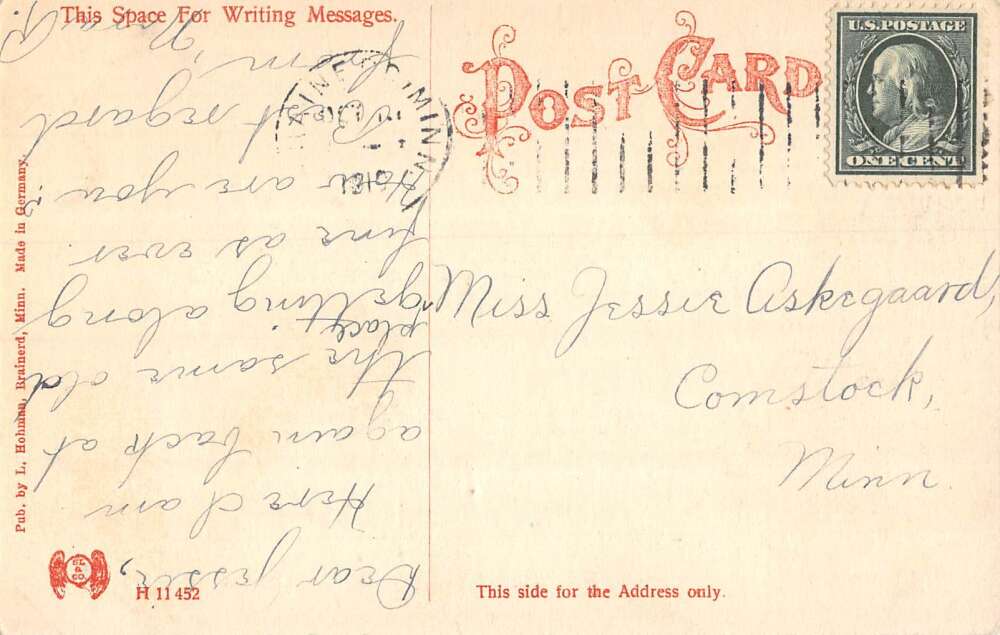 This Space For Writing Messages.
POST CARD
U.S. POSTAGE
ONE CENT
MINN.
1910
Dear Jessie,
Here I am
again back at
the same old
place,
getting along
fine as ever
How are you?
Best regard
from,
Miss Jessie Askegaard,
Comstock,
Minn.
Pub. by L. Hohman, Brainerd, Minn. Made in Germany.
H 11 452
This side for the Address only.